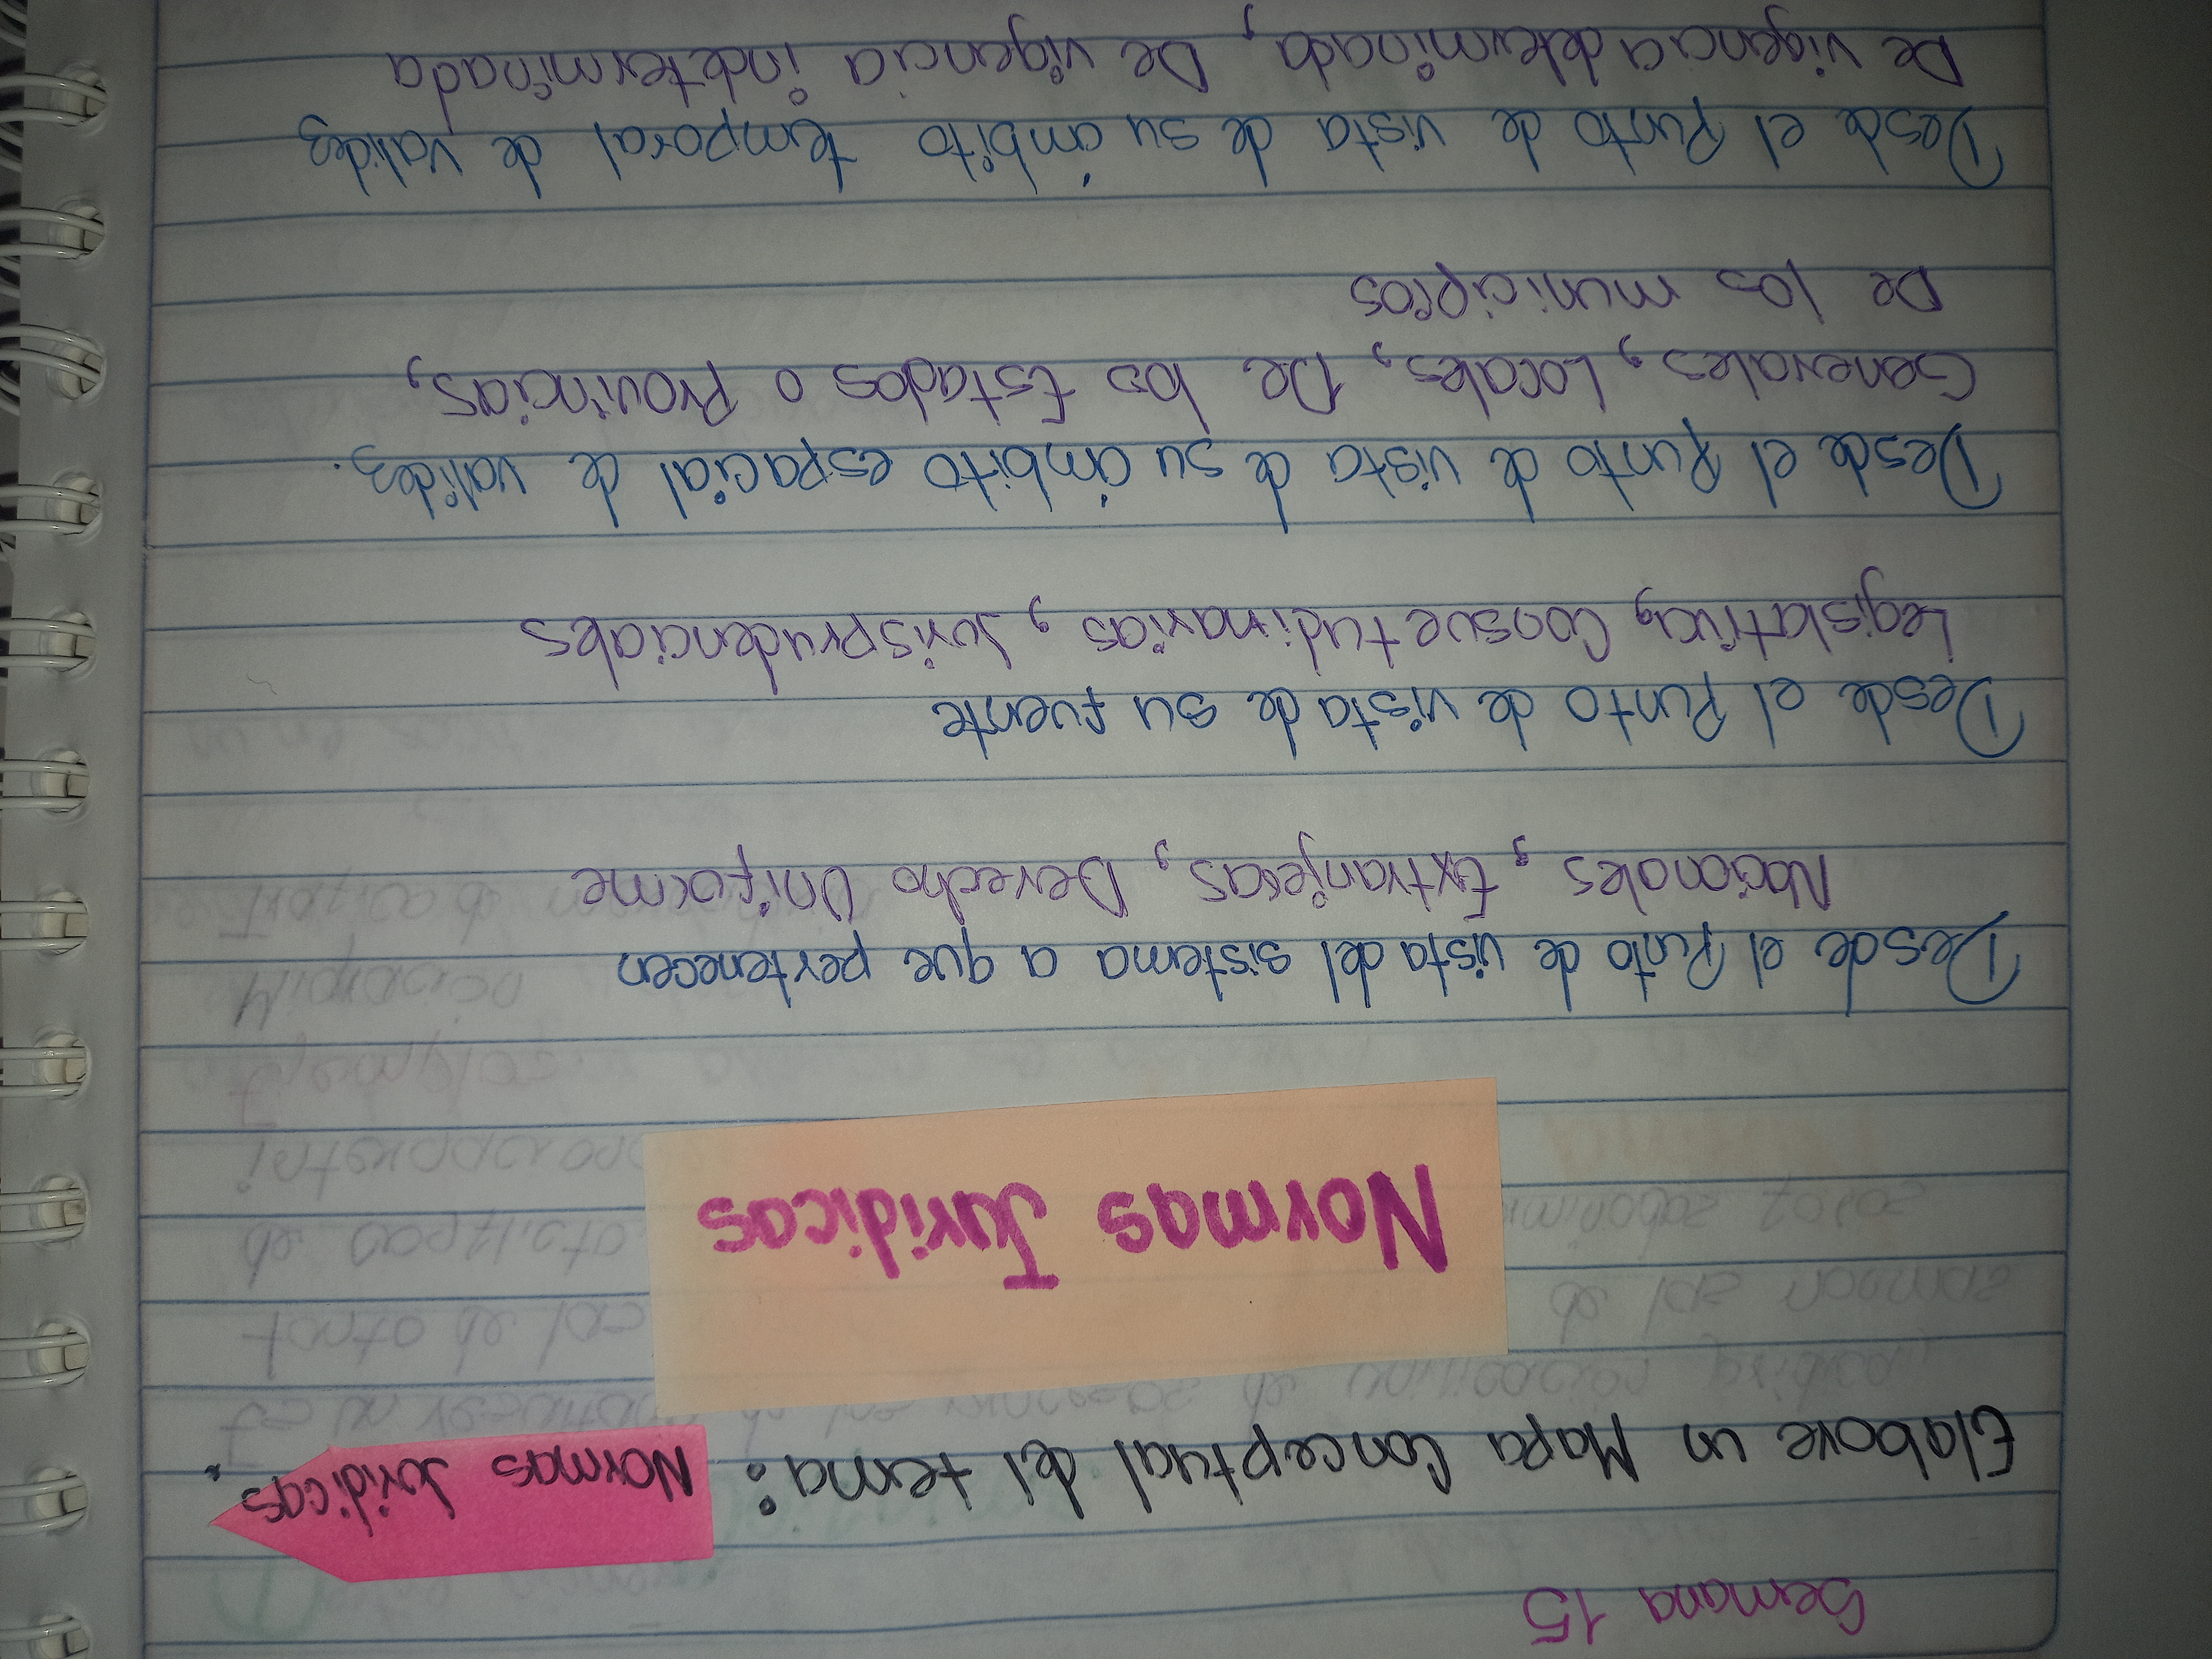 Semana 15
Elabore un Mapa Conceptual del tema: Normas Juridicas.
Normas Juridicas
Desde el Punto de vista del sistema a que pertenecen
Nacionales, Extranjeras, Derecho Uniforme
Desde el Punto de vista de su fuente
Consuetudinarias, Jurisprudenciales
Desde el Punto de vista de su ámbito espacial de validez.
Generales, Locales, De los Estados o Provincias,
De los municipios
Desde el Punto de vista de su ámbito temporal de validez
De vigencia determinada, De vigencia indeterminada